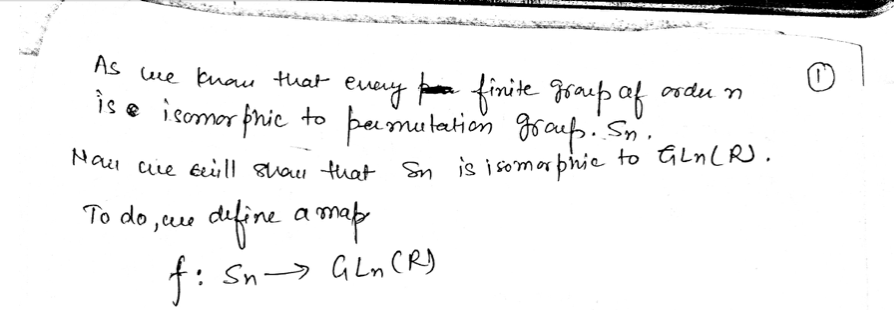 As we know that every finite group of order n ①
is isomorphic to permutation group. Sn.
Now we will show that Sn is isomorphic to GLn(R).
To do, we define a map
f: Sn → GLn(R)